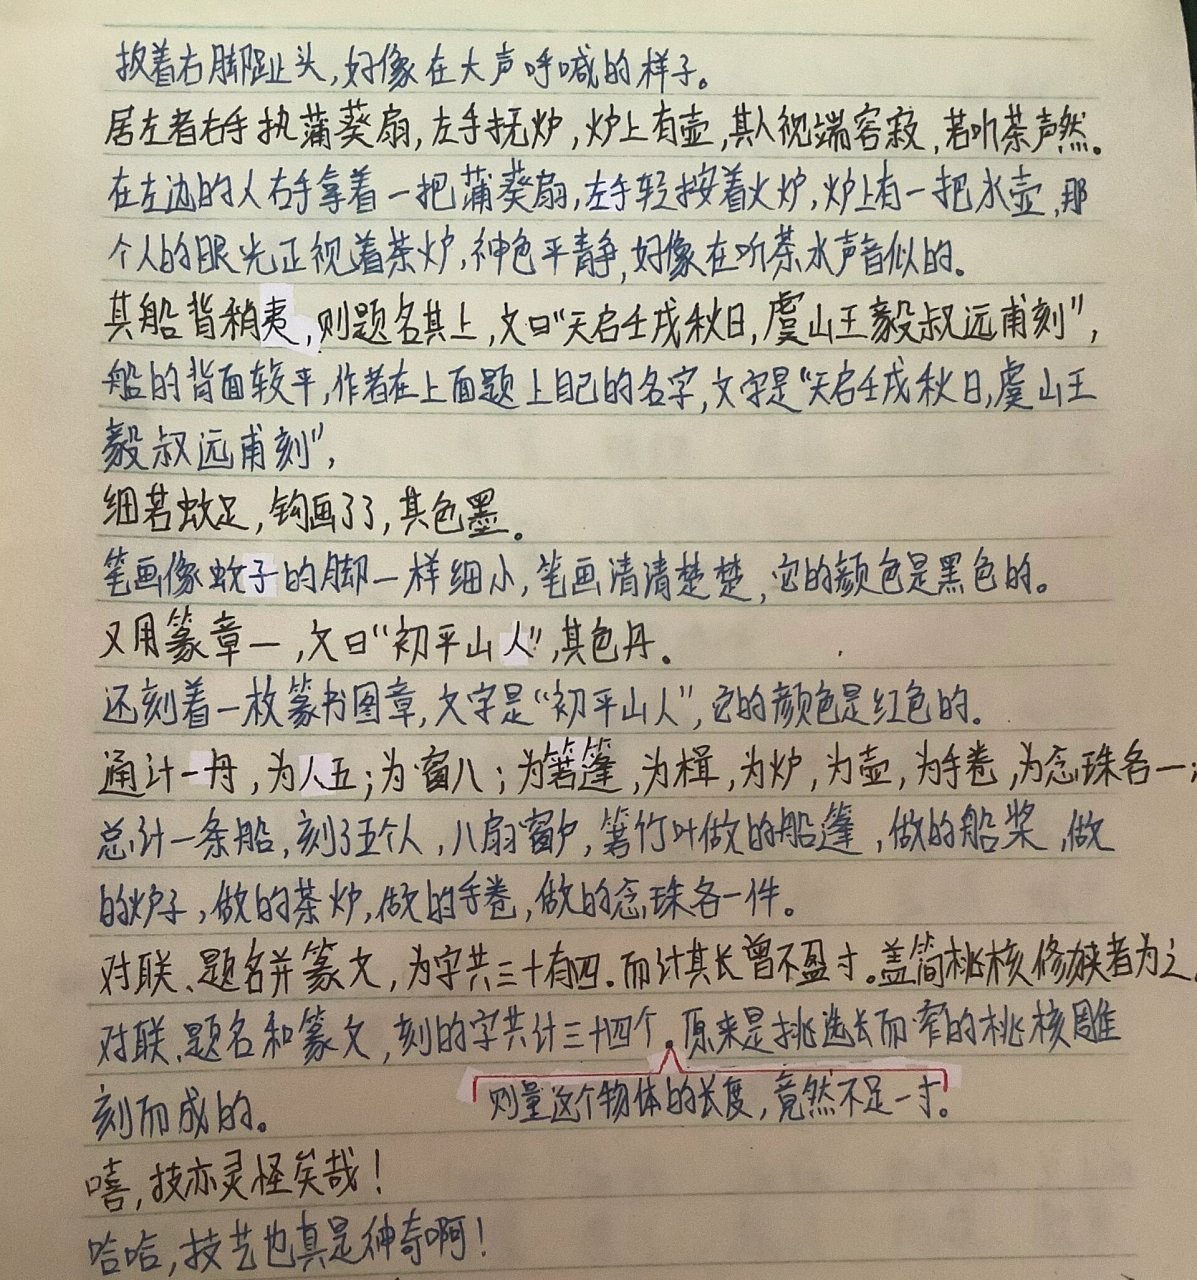 扳着右脚趾头，好像在大声呼喊的样子。
居左者右手执蒲葵扇，左手抚炉，炉上有壶，其人视端容寂，若听茶声然。
在左边的人右手拿着一把蒲葵扇，左手轻按着火炉，炉上有一把水壶，那
个人的眼光正视着茶炉，神色平静，好像在听茶水声音似的。
其船背稍夷，则题名其上，文曰“天启壬戌秋日，虞山王毅叔远甫刻”，
船的背面较平，作者在上面题上自己的名字，文字是“天启壬戌秋日，虞山王
毅叔远甫刻”，
细若蚊足，钩画了了，其色墨。
笔画像蚊子的脚一样细小，笔画清清楚楚，它的颜色是黑色的。
又用篆章一，文曰“初平山人”，其色丹。
还刻着一枚篆书图章，文字是“初平山人”，它的颜色是红色的。
通计一舟，为人五；为窗八；为箬篷，为楫，为炉，为壶，为手卷，为念珠各一；
总计一条船，刻了五个人，八扇窗户，箬竹叶做的船篷，做的船桨，做
的炉子，做的茶炉，做的手卷，做的念珠各一件。
对联、题名并篆文，为字共三十有四。而计其长曾不盈寸。盖简桃核修狭者为之。
对联、题名和篆文，刻的字共计三十四个。原来是挑选长而窄的桃核雕
则量这个物体的长度，竟然不足一寸。
刻而成的。
嘻，技亦灵怪矣哉！
哈哈，技艺也真是神奇啊！